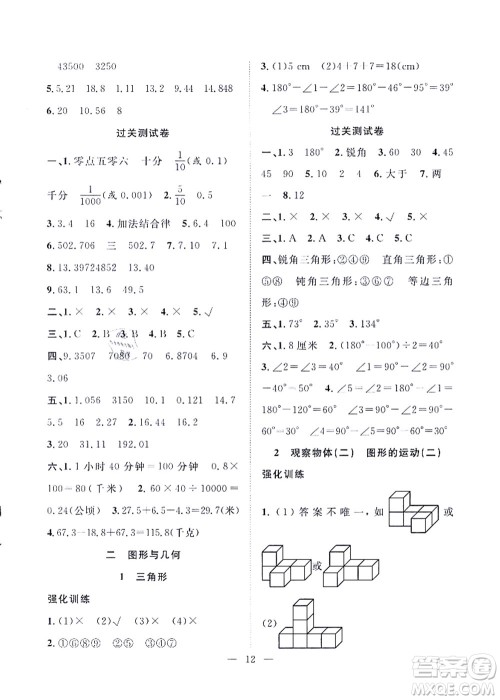 43500　3250
5.5.21　18.8　1.11　9.14　14.848
6.20　10.56　8
过关测试卷
一、1.零点五零六　十分　1/10(或 0.1)
千分　1/1000(或 0.001)　2.5/10　17/100
3.3.4　16　4.加法结合律　5.0.0004
6.502.706　三　502.71　7.3　0.03
8.13.39724852　13.40
9.63.1　2.44
二、1.×　2.×　3.×　4.×　5.√
三、1.C　2.B　3.B　4.C　5.B
四、9.3507　7080　8.2　6.29　6.9
3.06
五、1.1.056　3.156　4.715　2.17.14
5.5　16　28　0.7　3.2.87　4.7
19.32　191.02　4.29　15.81　10
六、1.1 小时 40 分＝100 分　0.8×
100＝80(千米)　2.40×60÷10000＝
0.24(公顷)　3.27.6＋5－4.8＝27.8(米)
4.67.3－1.8＋2.4－0.6＝67.3(千克)
二　图形与几何
1　三角形
强化训练
一、1.(1)×　(2)√　(3)×　(4)×
2.①⑥⑧⑨　②③④⑦　⑤　⑥
7.3.(1)5 cm　(2)4＋7＋7＝18(cm)
4.180°－∠1－∠2＝180°－96°－45°＝39°
∠3＝180°－39°＝141°
过关测试卷
一、1.3　180°　2.锐角　3.50°　4.45°
5.40　40　6.4　26　7.大于　两
一　8.12
二、1.×　2.√　3.×　4.√　5.×
三、1.A　2.A　3.C　4.C
四、锐角三角形：②④⑨　直角三角形：①
⑤⑧　钝角三角形：③⑥⑦　等边三角形：
④⑨
五、1.73°　2.31°　3.87°　4.18°
六、1.8厘米　2.(180°－80°)÷2＝50°
3.∠2＝180°－90°－40°＝50°　∠1＝180°－
50°＝130°　4.∠5＝180°－90°－30°＝
60°　∠4＝90°－60°＝30°　∠2＝90°－
30°＝60°
2　观察物体(二)　图形的运动(二)
强化训练
一、1.(1)答案不唯一,
或
或
(2)
12
答案圈
MXQE.COM